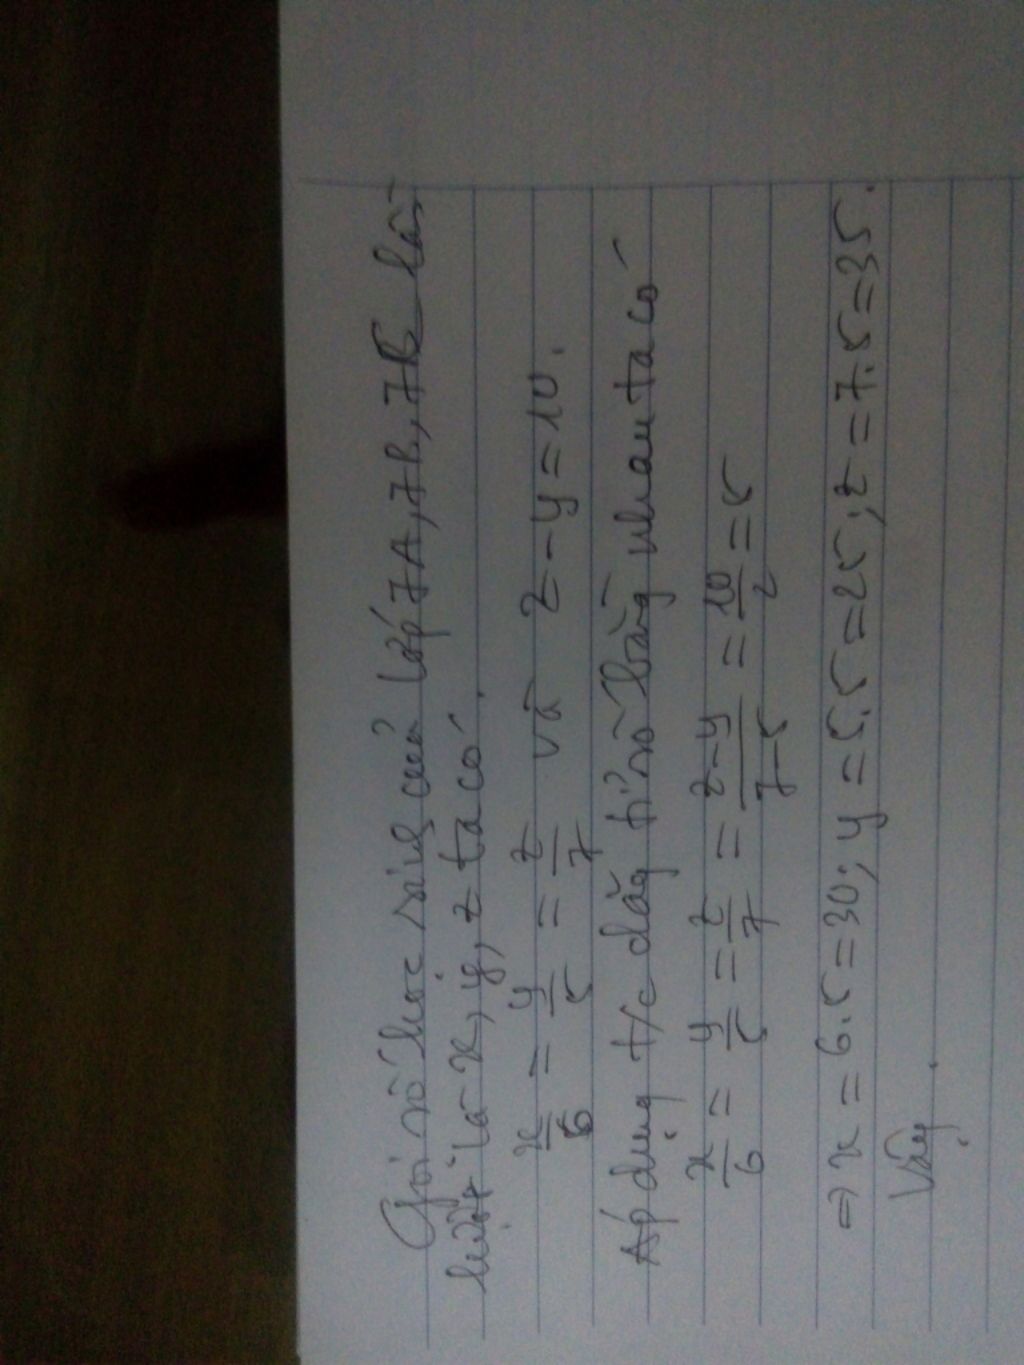 Gọi số học sinh của lớp 7A, 7B, 7B lần
lượt là x, y, z ta có
x/6 = y/5 = z/7 và z - y = 10.
Áp dụng t/c dãy tỉ số bằng nhau ta có
x/6 = y/5 = z/7 = z-y/7-5 = 10/2 = 5
⇒ x = 6.5 = 30; y = 5.5 = 25; z = 7.5 = 35.
Vậy.